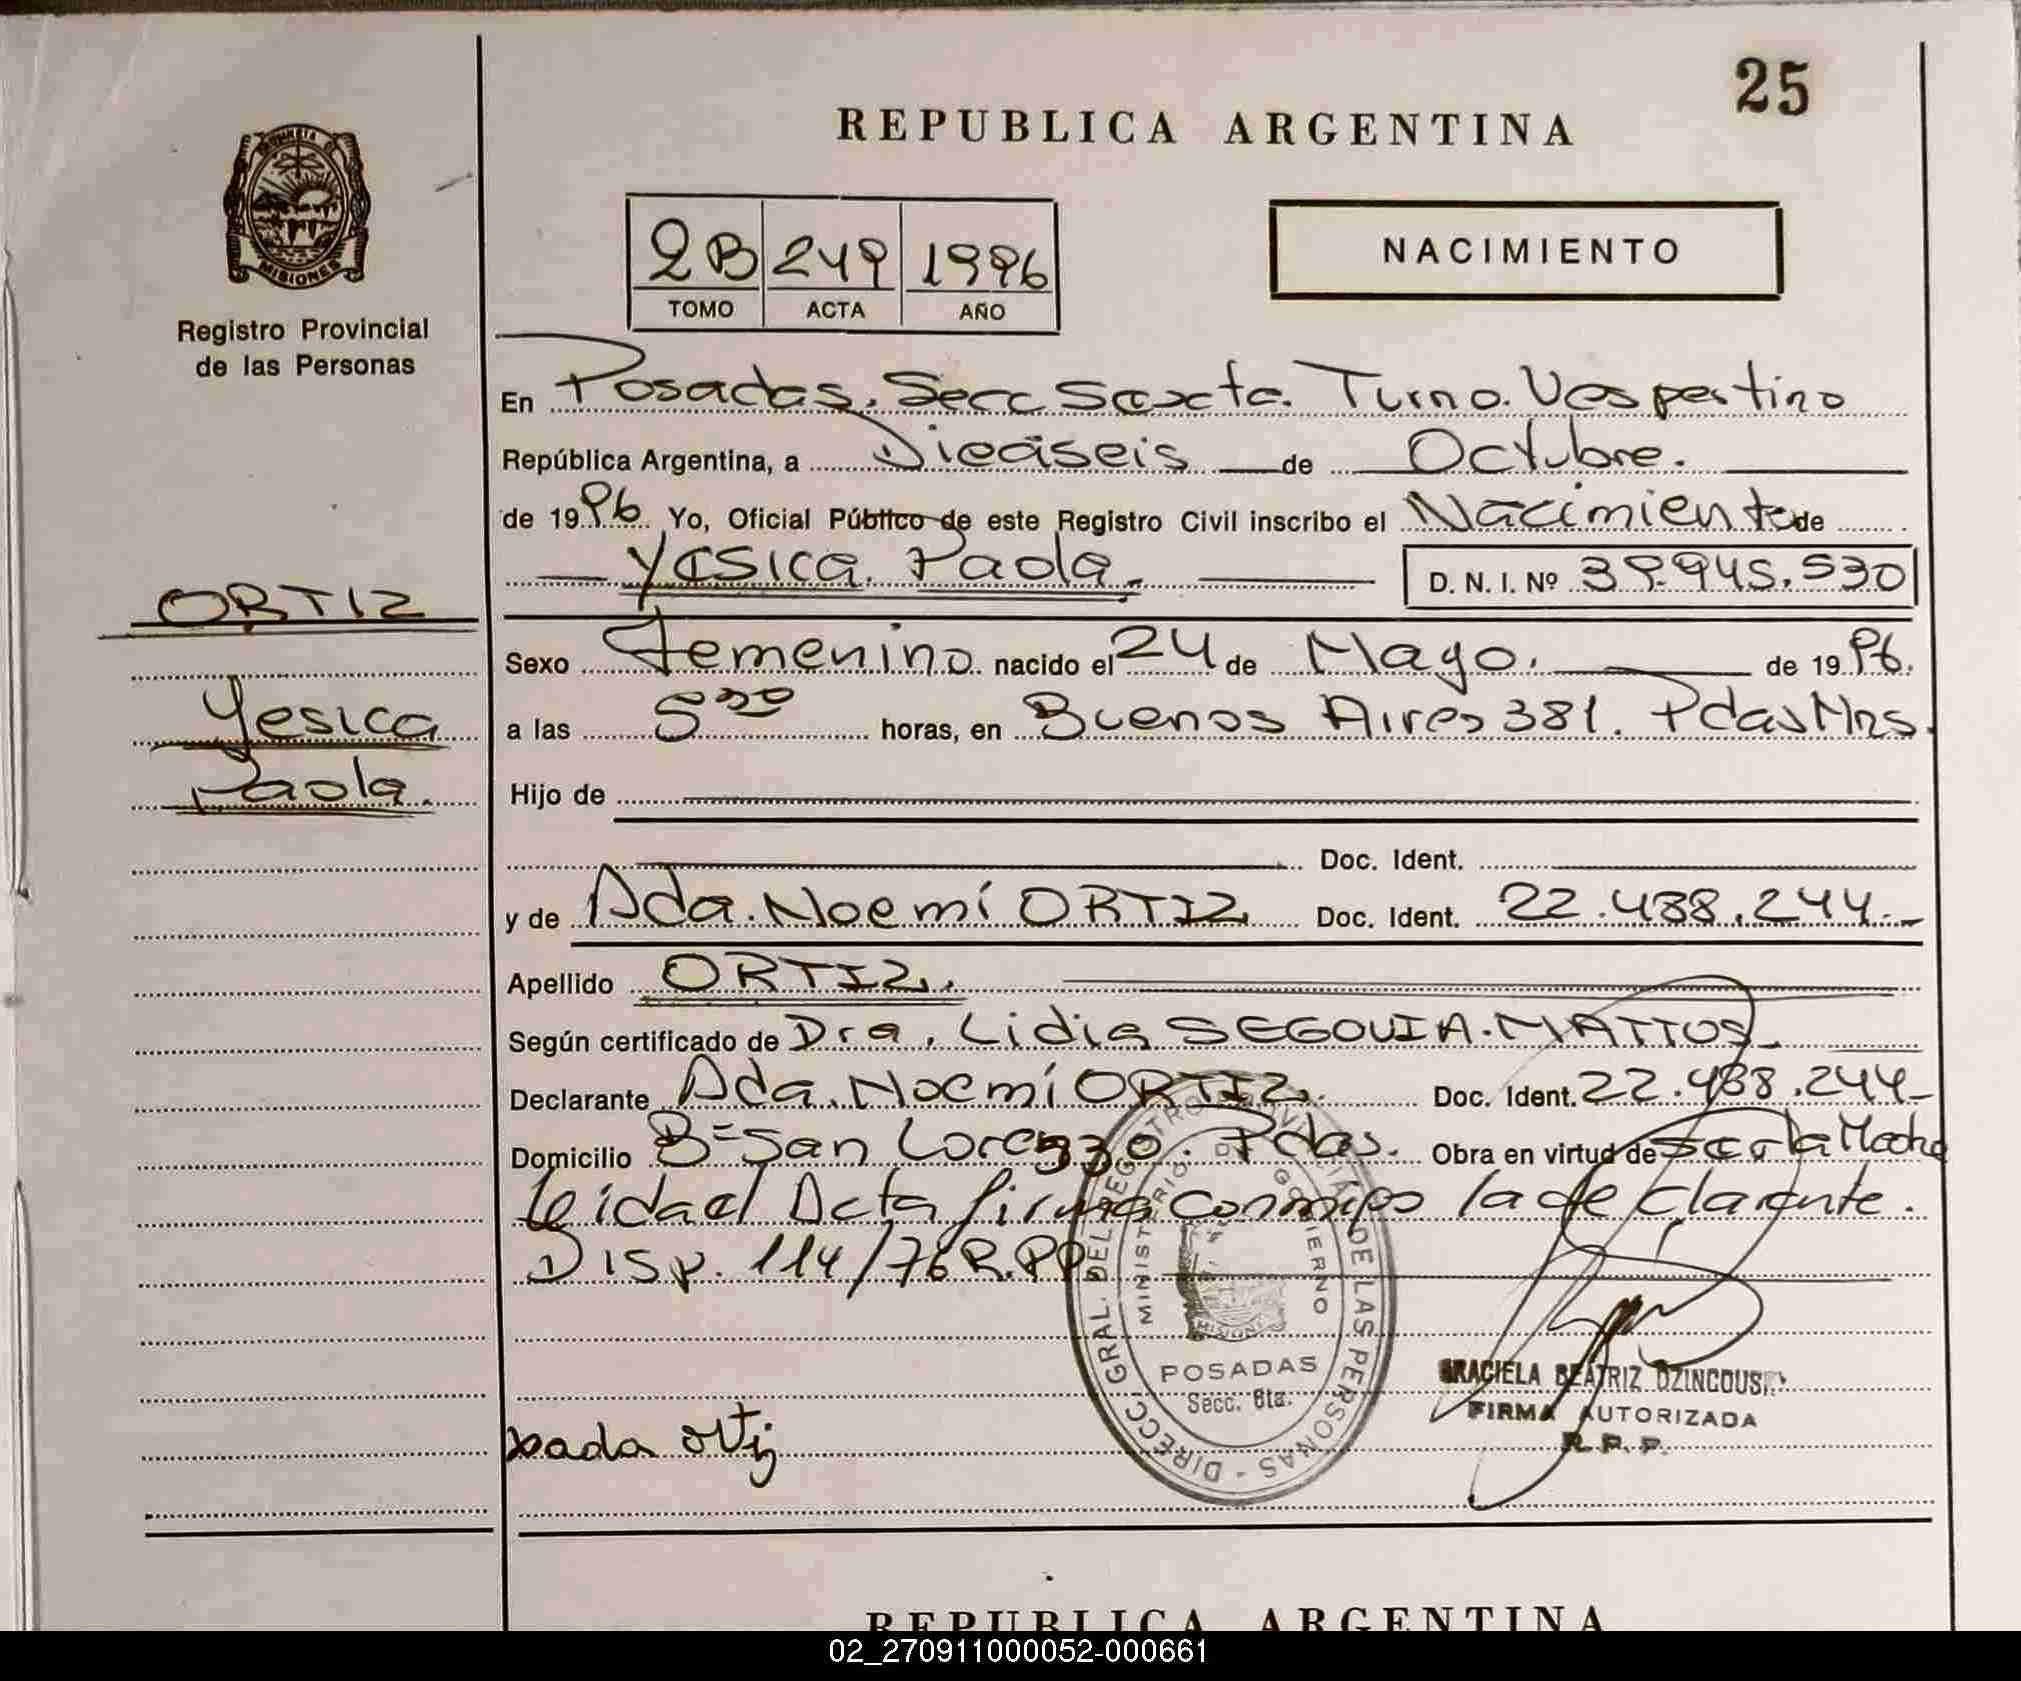 25
REPUBLICA ARGENTINA
MISIONES
Registro Provincial
de las Personas
2B 249 1996
TOMO ACTA AÑO
NACIMIENTO
En Posadas. Secc Sexta. Turno. Vespertino
República Argentina, a Dieciseis de Octubre.
de 1996 Yo, Oficial Público de este Registro Civil inscribo el Nacimiento de
Yesica. Paola. D. N. I. Nº 39.945.530
ORTIZ
Yesica
Paola.
Sexo Femenino nacido el 24 de Mayo. de 1996.
a las 5 30 horas, en Buenos Aires 381. Pdas Mns.
Hijo de
Doc. Ident.
y de Ada. Noemí ORTIZ Doc. Ident. 22.488.244.-
Apellido ORTIZ.
Según certificado de Dra. Lidia SEGOVIA. MATTOS
Declarante Ada. Noemí ORTIZ. Doc. Ident. 22.488.244-
Domicilio B= San Lorenzo. Pdas. Obra en virtud de ser la Madre
leida el Acta firma conmigo la declarante.
Disp. 114/76 R.PP
DIRECC. GRAL. DEL REGISTRO PROVINCIAL DE LAS PERSONAS -
MINISTERIO DE GOBIERNO
MISIONES
POSADAS
Secc. 6ta.
GRACIELA BEATRIZ
FIRMA AUTORIZADA
R. P. P.
ada ortiz
REPUBLICA ARGENTINA
02_270911000052-000661